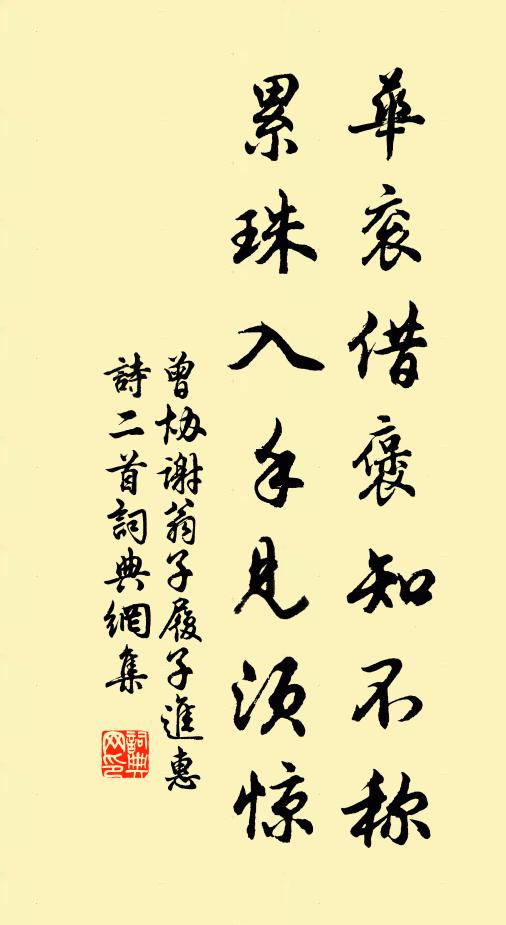 華衮借褒知不称
累珠入手見須惊
曾协谢翁子履子進惠
詩二首詞典網集
詞典網印